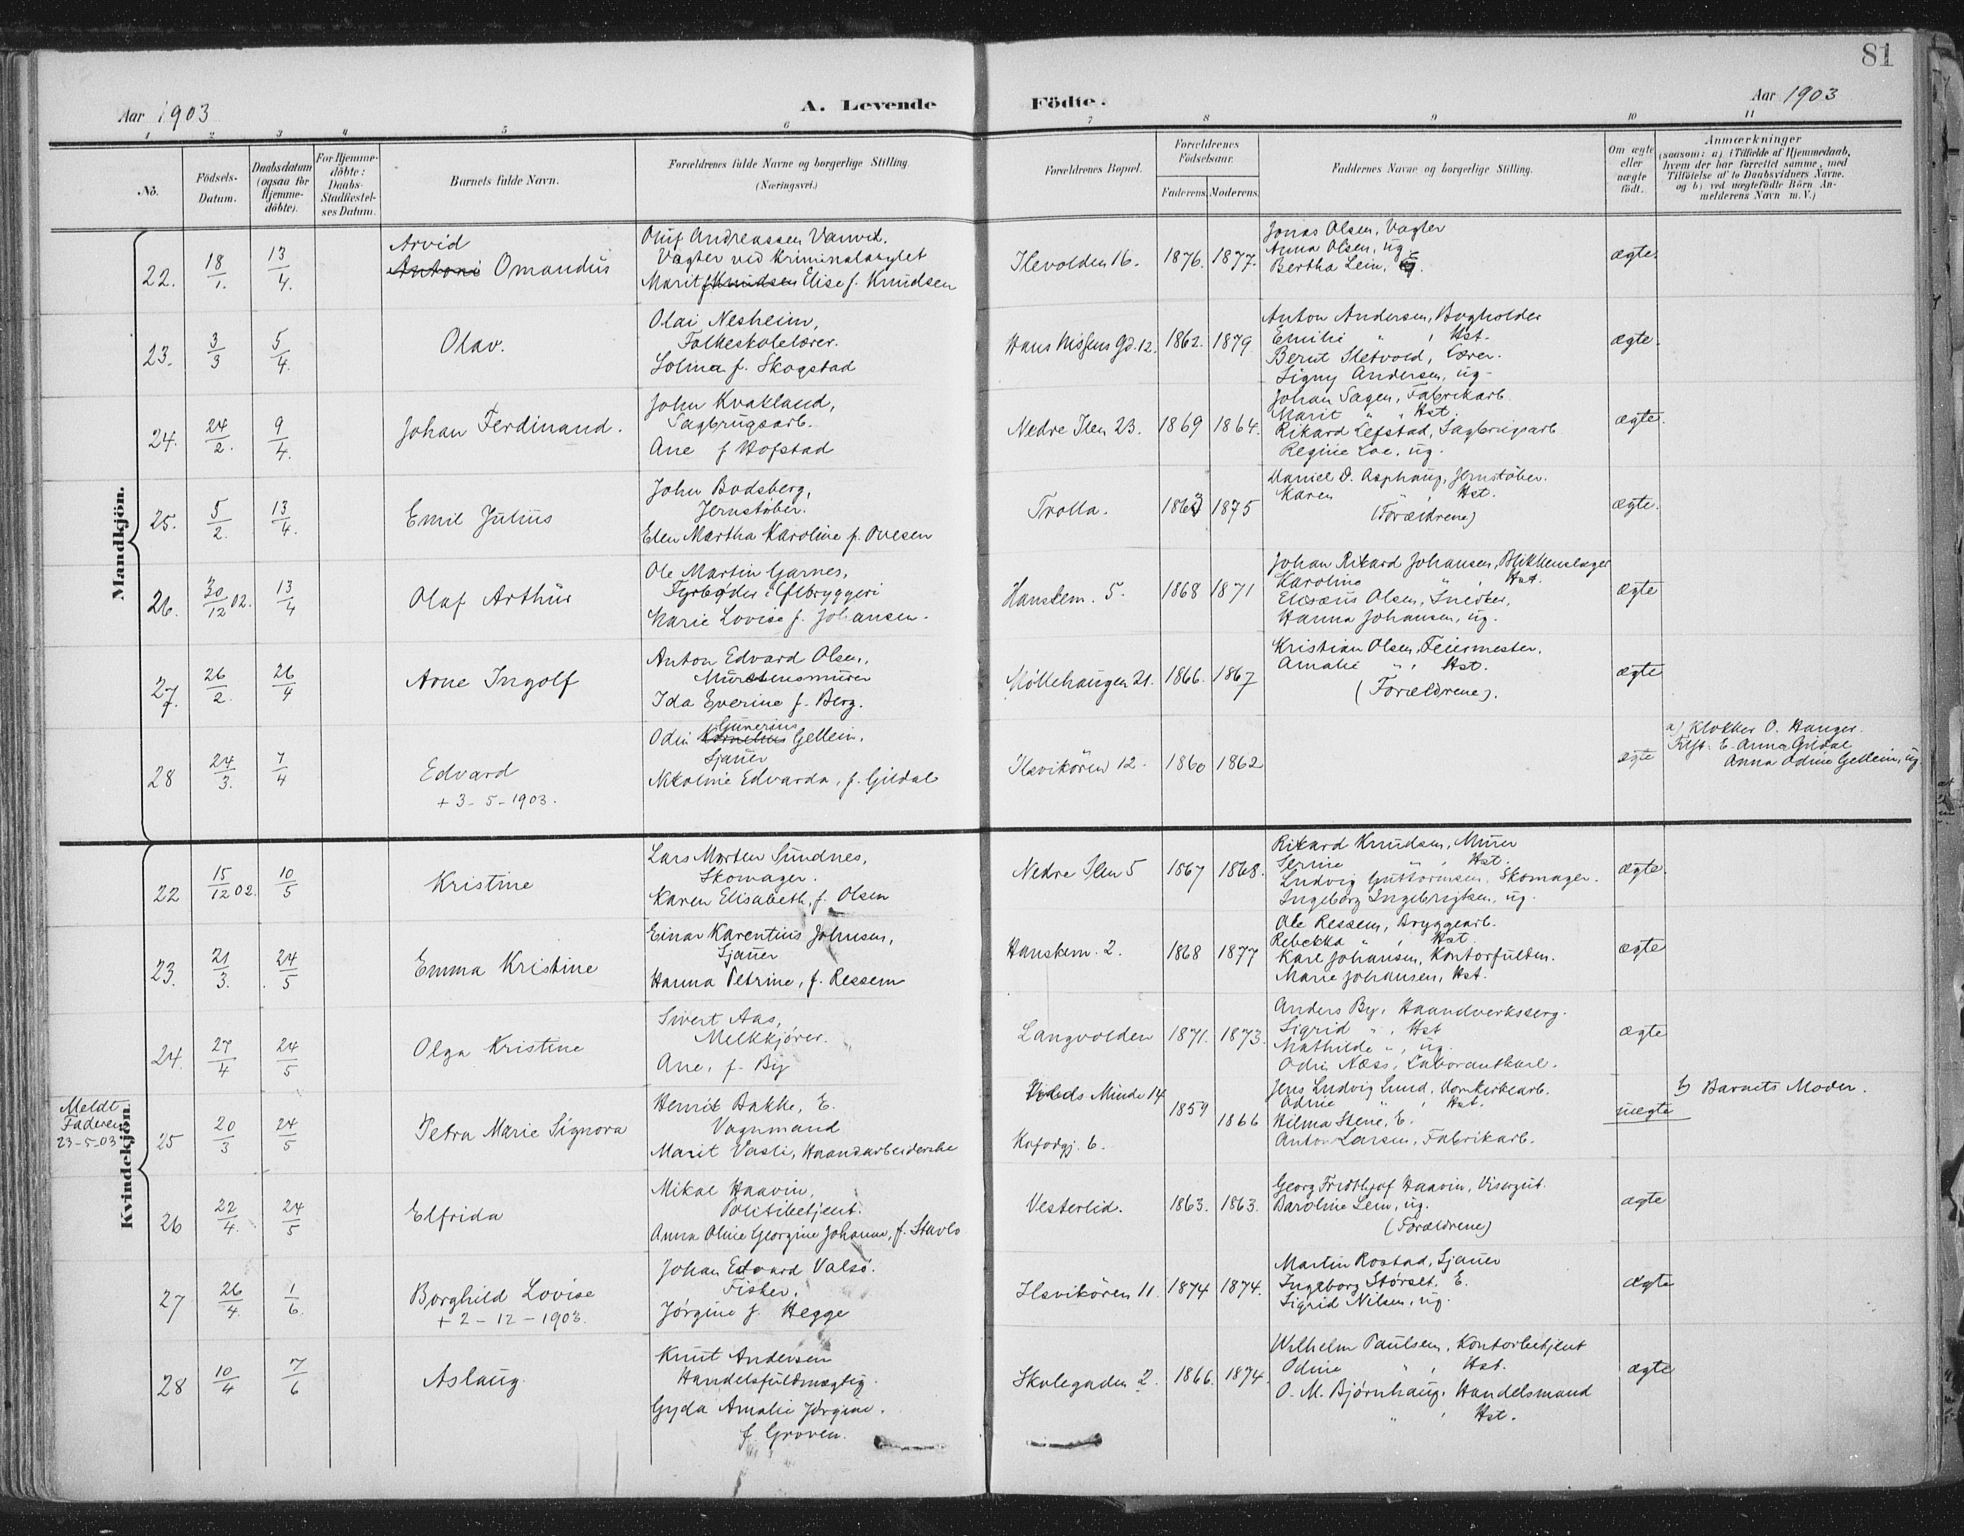 81
Aar 1903
A. Levende Födte.
Aar 1903
1 2 3 4 5 6 7 8 9 10 11
No.
Födsels-Datum.
Daabsdatum (ogsaa for Hjemme-döbte).
For Hjemme-döbte: Daabs-Stadfæstel-ses Datum.
Barnets fulde Navn.
Forældrenes fulde Navne og borgerlige Stilling (Næringsvei.)
Forældrenes Bopæl.
Forældrenes Födselsaar.
Faderens. Moderens.
Faddernes Navne og borgerlige Stilling.
Om ægte eller uægte født.
Anmærkninger
(saasom: a) i Tilfælde af Hjemmedaab, hvem der har forrettet samme, med Tilföielse af to Daabsvidners Navne, og b) ved uægtefödte Börn Anmelderens Navn m. V.)
Mandkjön.
22. 18/1. 13/4.
Arvid
Antoni Omandus
Oluf Andreassen Vanvik,
Vagter ved Kriminalasylet
Marit f. Knudsen Elise f. Knudsen
Ilevolden 16. 1876. 1877.
Jonas Olsen, Vagter
Anna Olsen, ug.
Bertha Lein, E.
ægte.
23. 3/3 5/4.
Olav.
Olai Nesheim,
Folkeskolelærer.
Solma f. Skogstad
Hans Nissens Gd. 12. 1862. 1879
Anton Andersen, Bogholder
Emilie " , Hst.
Bernt Sletvold, Lærer.
Signy Andersen, ug.
ægte.
24. 24/2. 9/4.
Johan Ferdinand.
John Kvakland,
Sagbrugsarb.
Ane f Hofstad
Nedre Ilen 23. 1869 1864.
Johan Sagen, Fabrikarb.
Marit " , Hst.
Rikard Lefstad, Sagbrugsarb.
Regine Loe, ug.
ægte.
25. 5/2. 13/4.
Emil Julius
John Bodsberg,
Jernstøber.
Elen Martha Karoline f. Ovesen
Trolla. 1875
Daniel O. Asphaug, Jernstøber.
Karen " , Hst.
(Forældrene)
ægte.
26. 30/12 02. 13/4
Olaf Arthur
Ole Martin Garnes,
Fyrbøder i Ølbryggeri
Marie Lovise f. Johansen.
Hanskem. 5. 1868 1871
Johan Rikard Johansen, Blikkenslager
Karoline " , Hst.
Elesæus Olsen, Snedker,
Hanna Johansen, ug.
ægte
27. 26/2. 26/4
Arne Ingolf
Anton Edvard Olsen,
Murstensmurer
Ida Everine f. Berg.
Møllehaugen 21. 1866. 1867
Kristian Olsen, Feiermester,
Amalie " , Hst.
(Forældrene).
ægte
28 24/3. 7/4
Edvard
+ 3-5-1903.
Gunerius
Odin Kornelius Gellein,
Sjauer
Nikoline Edvarda, f. Gildal
Ilsvikören 12. 1860 1862
ægte
a) Klokker O. Hanger.
E. Anna Gildal
Anna Odine Gellein, ug
Kvindekjön.
22 15/12 02. 10/5
Kristine
Lars Morten Sundnes,
Skomager.
Karen Elisabeth, f. Olsen
Nedre Ilen 5 1867 1868.
Rikard Knudsen, Murer
Serine " , Hst.
Ludvig Guttormsen, Skomager.
Ingeborg Ingebrigtsen, ug.
ægte.
23. 21/3. 24/5
Emma Kristine
Einar Karentius Johnsen,
Sjauer
Hanna Petrine, f. Ressem
Hanskem. 2. 1868 1877
Ole Ressem, Bryggearb.
Rebekka " , Hst
Karl Johansen, Kontorfuldm.
Marie Johansen, Hst.
ægte
24. 27/4 24/5
Olga Kristine
Sivert Aas,
Melkkjører.
Ane, f. By
Langvolden 1871. 1873.
Anders By, Haandverksberg.
Sigrid " , Hst
Mathilde " , ug.
Odin Næss, Laborantkarl.
ægte
Meldt
Faderen
23-5-03
25 20/3 24/5
Petra Marie Signora
Henrik Bakke, E.
Vognmand
Marit Vasli, Haandarbeiderske
Minde 14
Kofodgj. 6.
1859 1866
Jens Ludvig Lund, Domkirkearb.
Odine " , Hst.
Hilma Stene, E.
Anton Larsen, Fabrikarb.
uægte
b) Barnets Moder.
26 22/4. 24/5
Elfrida
Mikal Haavin,
Politibetjent.
Anna Oline Georgine Johanne, f. Stavlo
Vesterlid. 1863. 1863.
Georg Fridthjof Haavin, Visergut.
Baroline Lein, ug.
(Forældrene)
ægte
27 26/4. 1/6.
Borghild Lovise
+ 2-12-1903.
Johan Edvard Valsø.
Fisker.
Jørgine f. Hegge
Ilsvikören 11 1874 1874.
Martin Rostad, Sjauer
Ingeborg Størset. E.
Sigrid Nilsen, ug.
ægte
28 10/4 7/6
Aslaug
Knut Andersen
Handelsfuldmægtig.
Gyda Amalie Jørgine.
f. Groven.
Skolegaden 2. 1866. 1874.
Wilhelm Paulsen, Kontorbetjent
Odine " , Hst.
O. M. Bjørnhaug, Handelsmand
" , Hst.
ægte